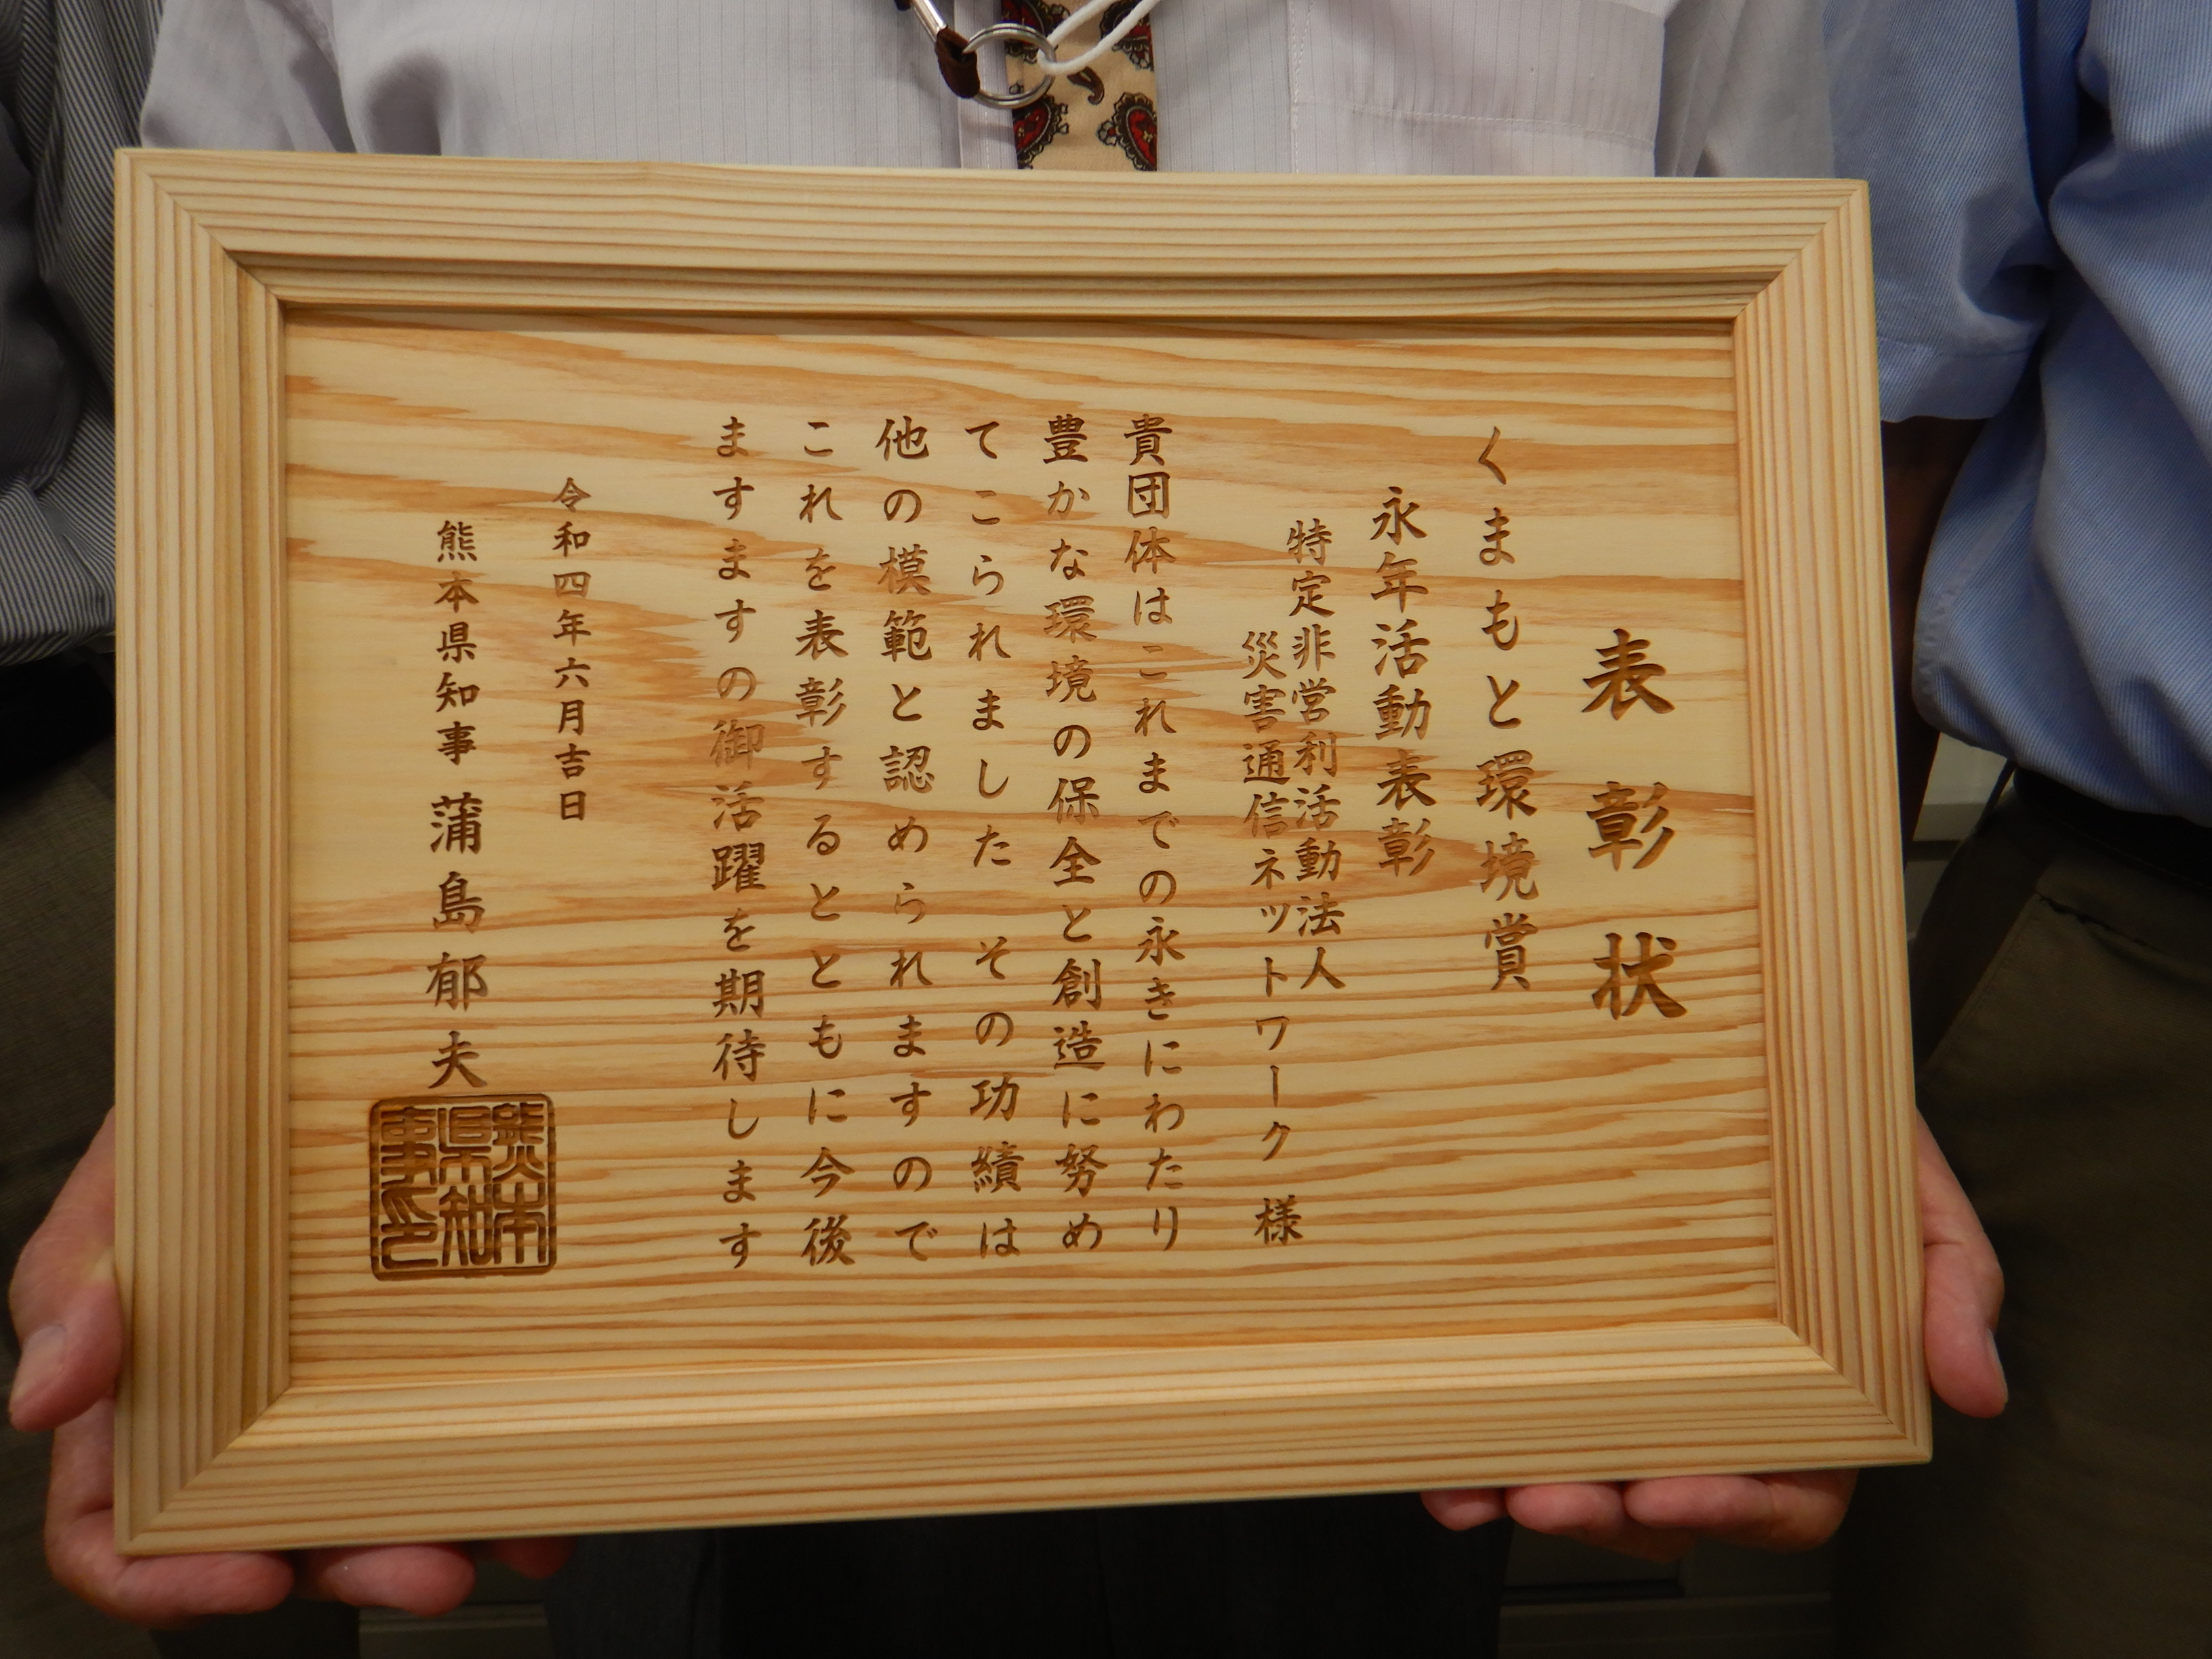 表彰状
くまもと環境賞
永年活動表彰
特定非営利活動法人
災害通信ネットワーク 様
貴団体はこれまでの永きにわたり
豊かな環境の保全と創造に努め
てこられました その功績は
他の模範と認められますので
これを表彰するとともに今後
ますますの御活躍を期待します
令和四年六月吉日
熊本県知事 蒲島郁夫
熊本
県知
事印